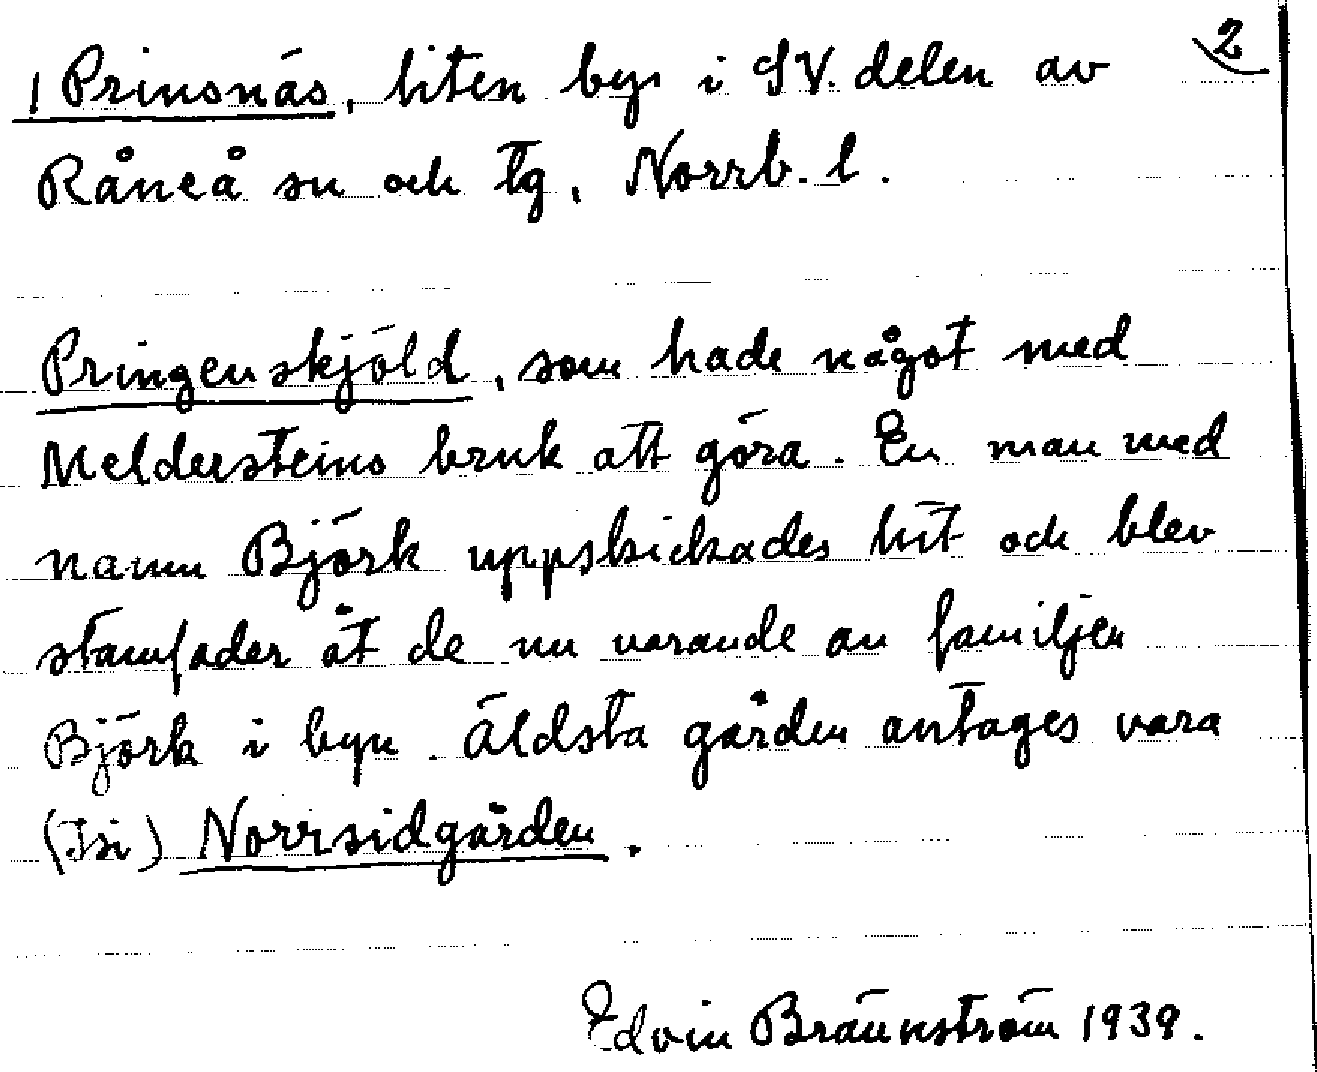 2
1 Prinsnäs, liten by i SV. delen av
Råneå sn och tg, Norrb. l.
Pringenskjöld, som hade något med
Meldersteins bruk att göra. En man med
namn Björk uppskickades hit och blev
stamfader åt de nu varande av familjen
Björk i byn. Äldsta gården antages vara
(Isi) Norrsidgården.
Edvin Brännström 1939.